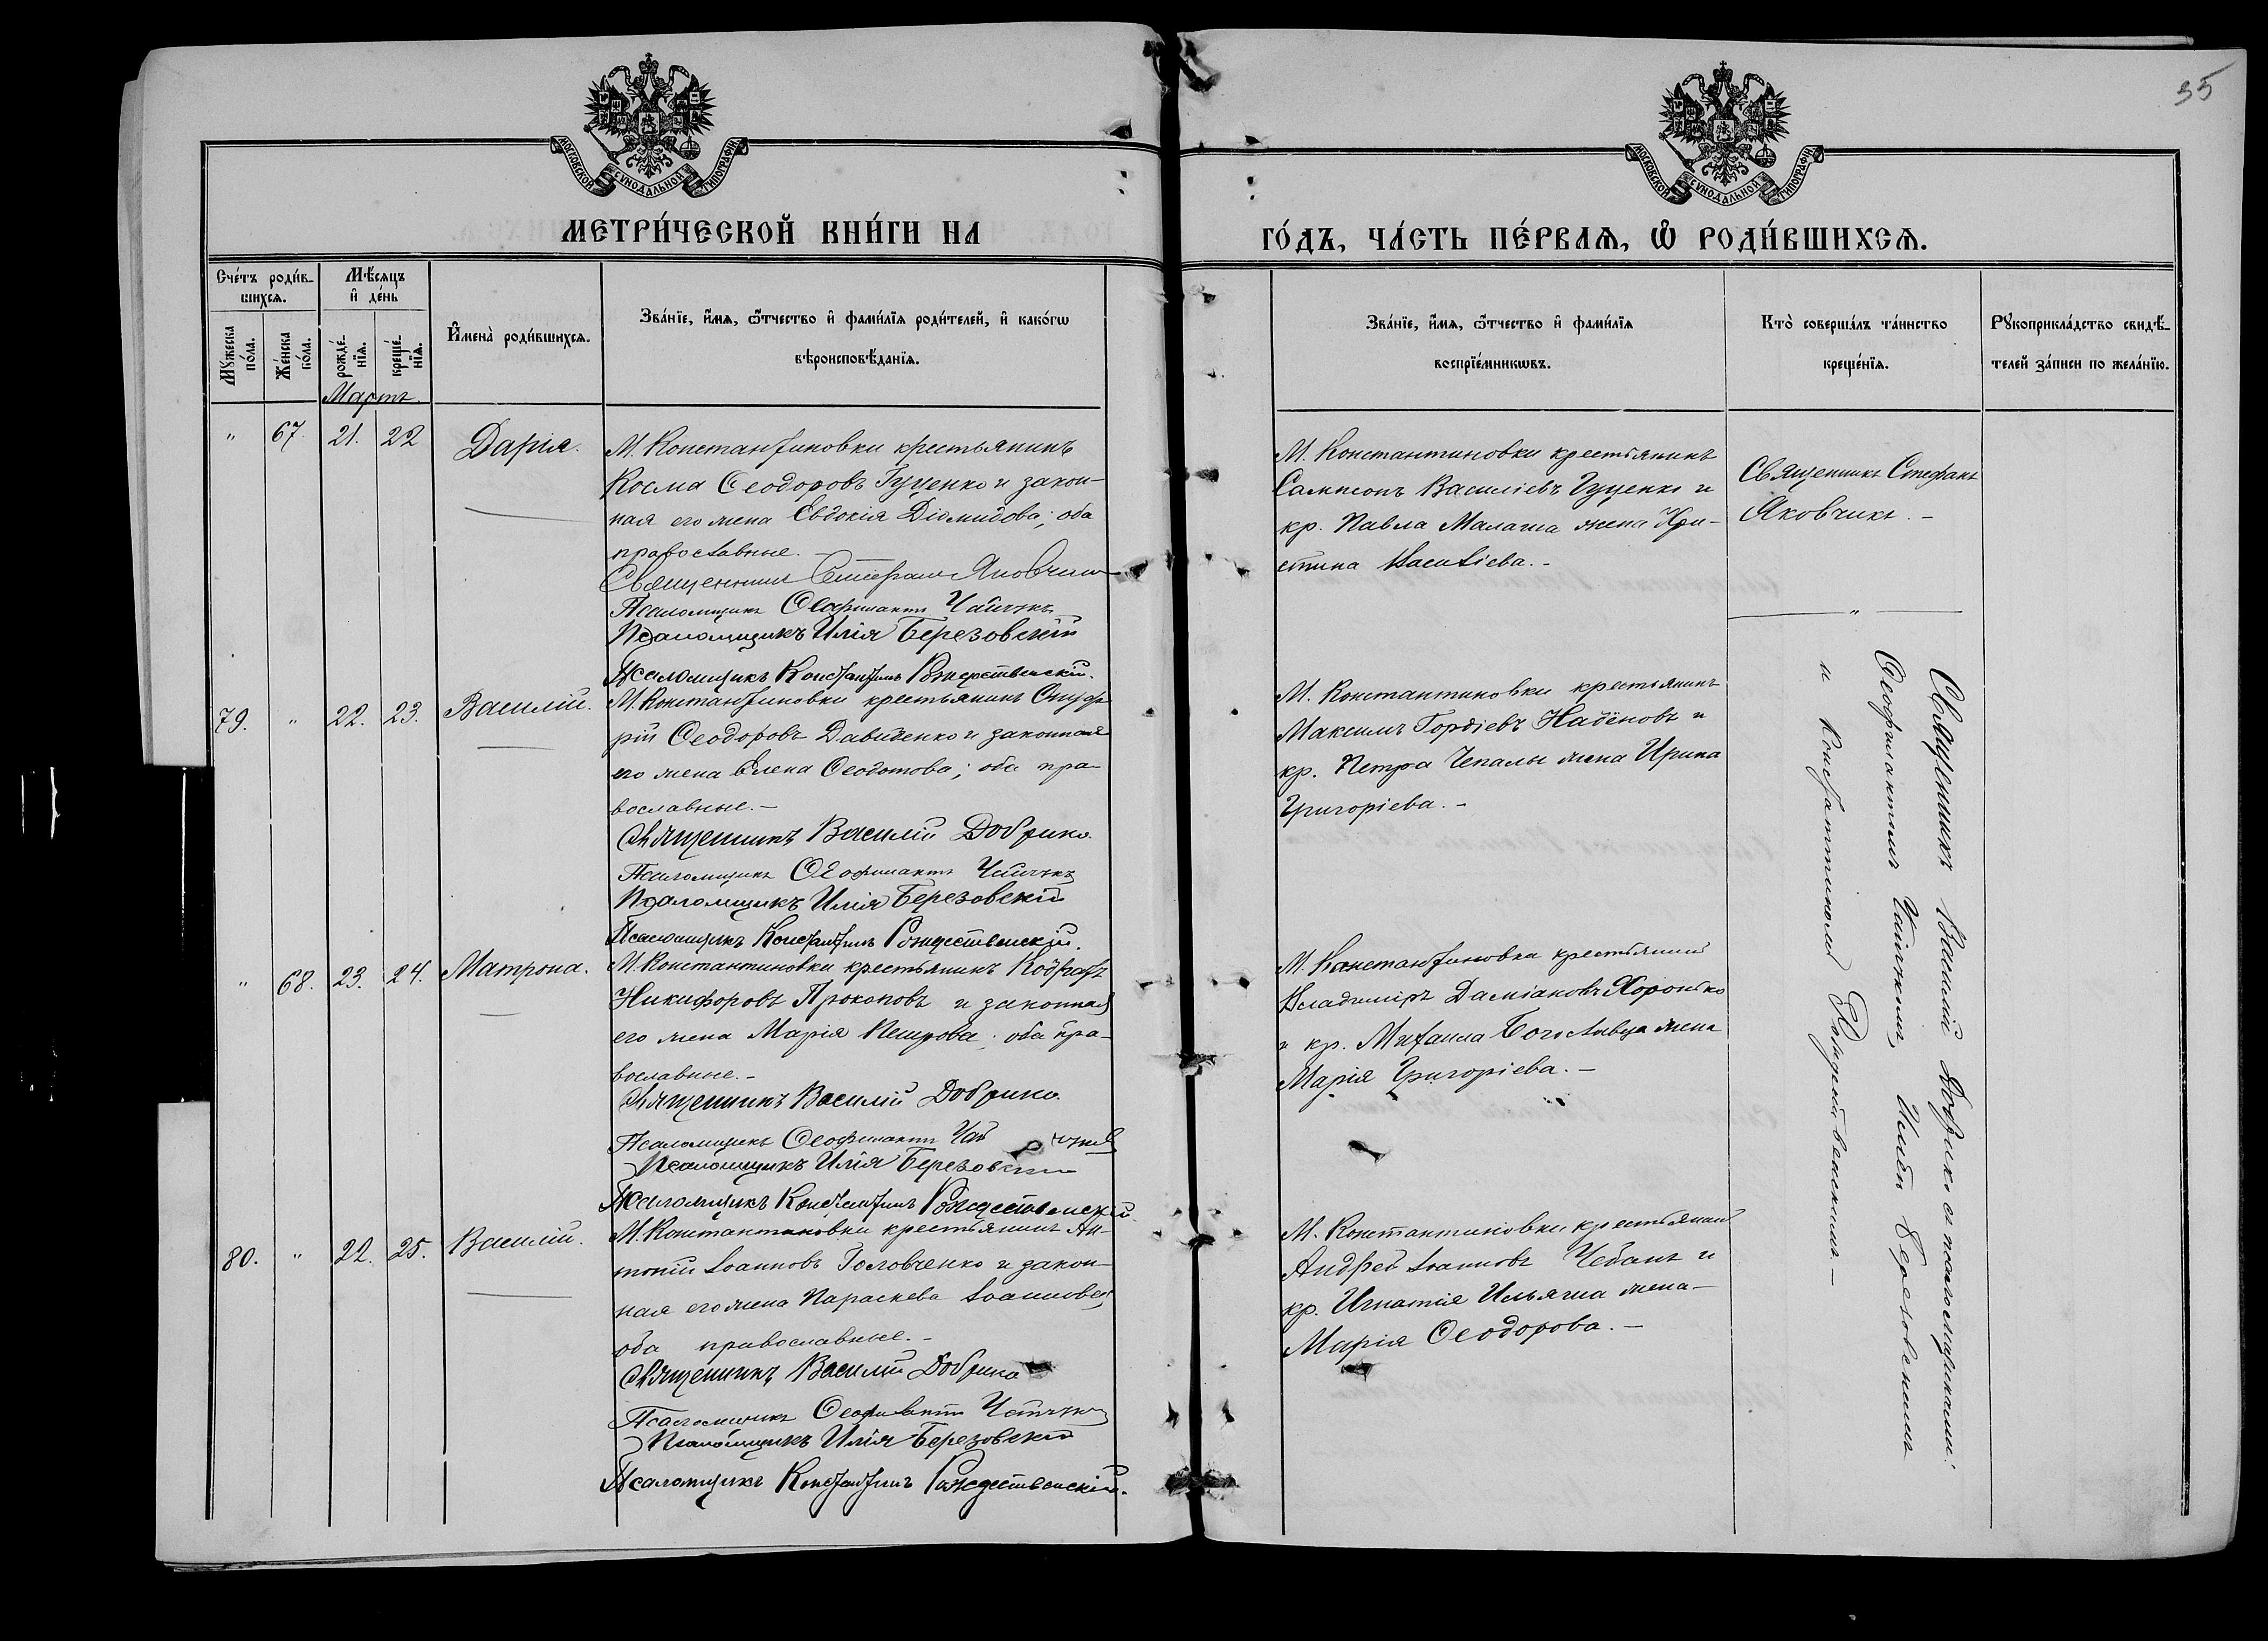 35
МОСКОВСКОЙ СѴНОДАЛЬНОЙ ТИПОГРАФІИ
МОСКОВСКОЙ СѴНОДАЛЬНОЙ ТИПОГРАФІИ
МЕТРИ́ЧЕСКОЙ КНИ́ГИ НА
ГО́ДЪ, ЧА́СТЬ ПЕ́РВАѦ, Ѽ РОДИ́ВШИХСѦ.
Сче́тъ роди́в-
шихсѧ.
Мѣ́сѧцъ
и҆ де́нь
Мꙋ́жеска
по́ла.
Же́нска
по́ла.
рожде́-
нїѧ.
креще́-
нїѧ.
И҆мена̀ роди́вшихсѧ.
Зва́нїе, и҆́мѧ, ѻ҆́тчество и҆ фами́лїѧ роди́телей, и҆ како́гѡ
вѣроисповѣ́данїѧ.
Зва́нїе, и҆́мѧ, ѻ҆́тчество и҆ фами́лїѧ
воспрїе́мникѡвъ.
Кто̀ соверша́лъ та́инство
креще́нїѧ.
Рꙋкоприкла́дство свидѣ́-
телей за́писи по жела́нїю.
Мартъ.
" 67. 21. 22 Дарія.
М. Константиновки крестьянинъ
Косма Ѳеодоровъ Гуценко и закон-
ная его жена Евдокія Діомидова; оба
православные. -
Священникъ Стефанъ Яковчикъ
Псаломщикъ Ѳеофилактъ Чайчукъ
Псаломщикъ Илія Березовскій
Псаломщикъ Константинъ Рождественскій.
М. Константиновки крестьянинъ
Сампсонъ Василіевъ Гуценко и
кр. Павла Малаша жена Хри-
стина Василіева. -
Священникъ Стефанъ
Яковчикъ. -
"
79. " 22. 23. Василій.
М. Константиновки крестьянинъ Онуф-
рій Ѳеодоровъ Давиденко и законная
его жена Елена Ѳеодотова; оба пра-
вославные. -
Священникъ Василій Добрико.
Псаломщикъ Ѳеофилактъ Чайчукъ
Псаломщикъ Илія Березовскій
Псаломщикъ Константинъ Рождественскій.
М. Константиновки крестьянинъ
Максимъ Гордіевъ Надёновъ и
кр. Петра Чепалы жена Ирина
Григоріева. -
" 68. 23. 24. Матрона.
М. Константиновки крестьянинъ Кодратъ
Никифоровъ Прокоповъ и законная
его жена Марія Петрова; оба пра-
вославные. -
Священникъ Василій Добрико.
Псаломщикъ Ѳеофилактъ Чайчукъ
Псаломщикъ Илія Березовскій
Псаломщикъ Константинъ Рождественскій.
М. Константиновки крестьянинъ
Владиміръ Даміановъ
и кр. Михаила Богославца жена
Марія Григоріева. -
80. " 22. 25. Василій.
М. Константиновки крестьянинъ Ан-
тоній Іоанновъ Головченко и закон-
ная его жена Параскева Іоаннова;
оба православные. -
Священникъ Василій Добрико
Псаломщикъ Ѳеофилактъ Чайчукъ
Псаломщикъ Илія Березовскій
Псаломщикъ Константинъ Рождественскій.
М. Константиновки крестьянинъ
Андрей Іоанновъ Чебанъ и
кр. Игнатія Ильяша жена -
Марія Ѳеодорова. -
Священникъ Василій Добрико съ псаломщиками:
Ѳеофилактомъ Чайчукомъ, Иліею Березовскимъ
и Константиномъ Рождественскимъ. -